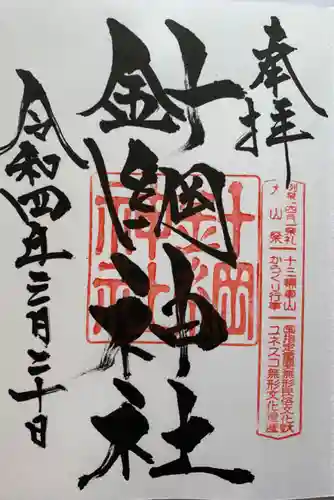 奉拝
針綱神社
針綱
神社
令和四年三月二十日
犬山祭
十三輌車山
からくり行事
国指定重要無形民俗文化財
ユネスコ無形文化遺産